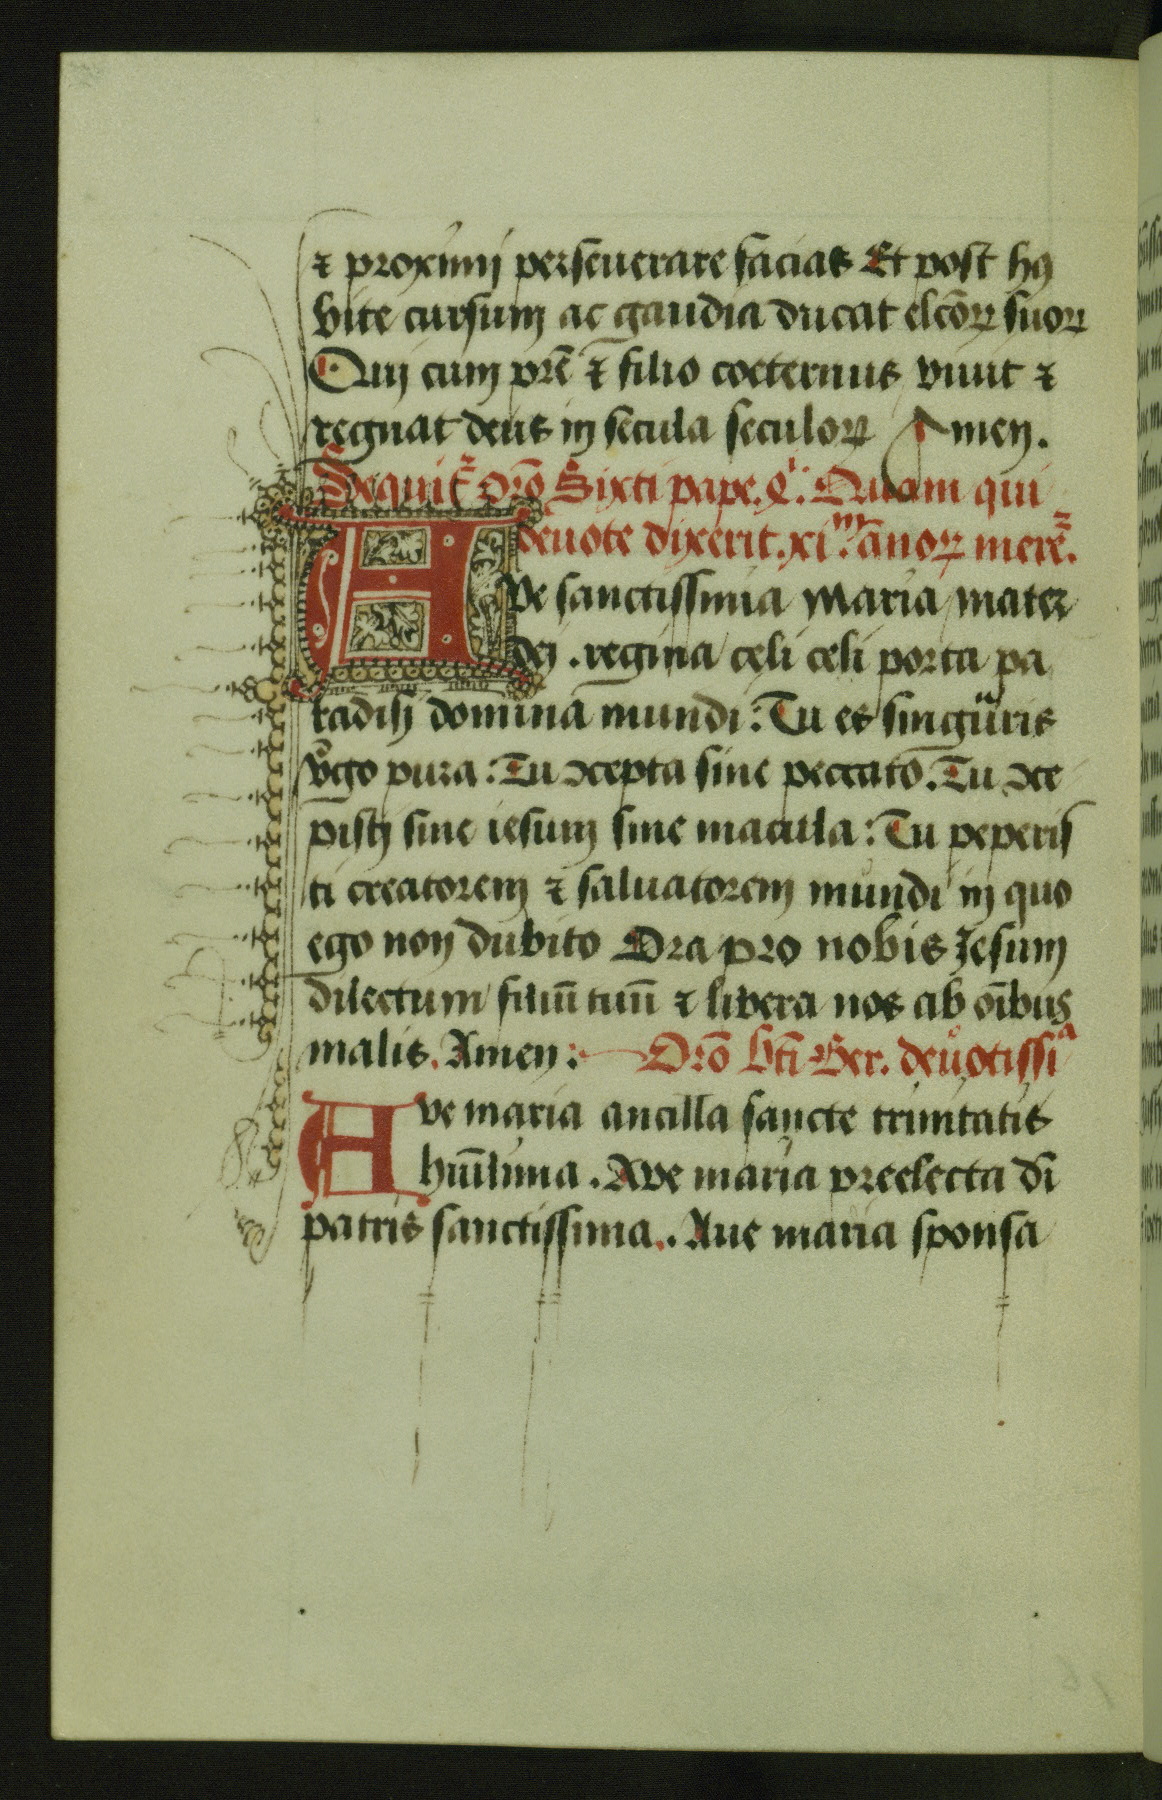 ⁊ proximi perseuerare facias Et post hꝰ
vite cursum ac gaudia ducat elcōꝝ suoꝝ
Qui cum pr̄e ⁊ filio coeternus viuit ⁊
regnat deus in secula seculoꝝ Amen.
Sequit᷑ Orō Sixti pape. Quam qui
deuote dixerit .xi.ᵐ annoꝝ mere᷑.
Ave sanctissima Maria mater
dei . regina celi celi porta pa
radisi domina mundi : Tu es singu̎ris
v̊go pura : Tu ↄcepta sine peccato . Tu ↄce
pisti sine iesum sine macula : Tu peperis
ti creatorem ⁊ saluatorem mundi in quo
ego non dubito Ora pro nobis Iesum
dilectum filiū tuū ⁊ libera nos ab oībus
malis . Amen : Orō bt̄i Ber. deuotissiᵃ
Ave maria ancilla sancte trinitatis
huīlima . Ave maria preelecta dī
patris sanctissima . . Aue maria sponsa